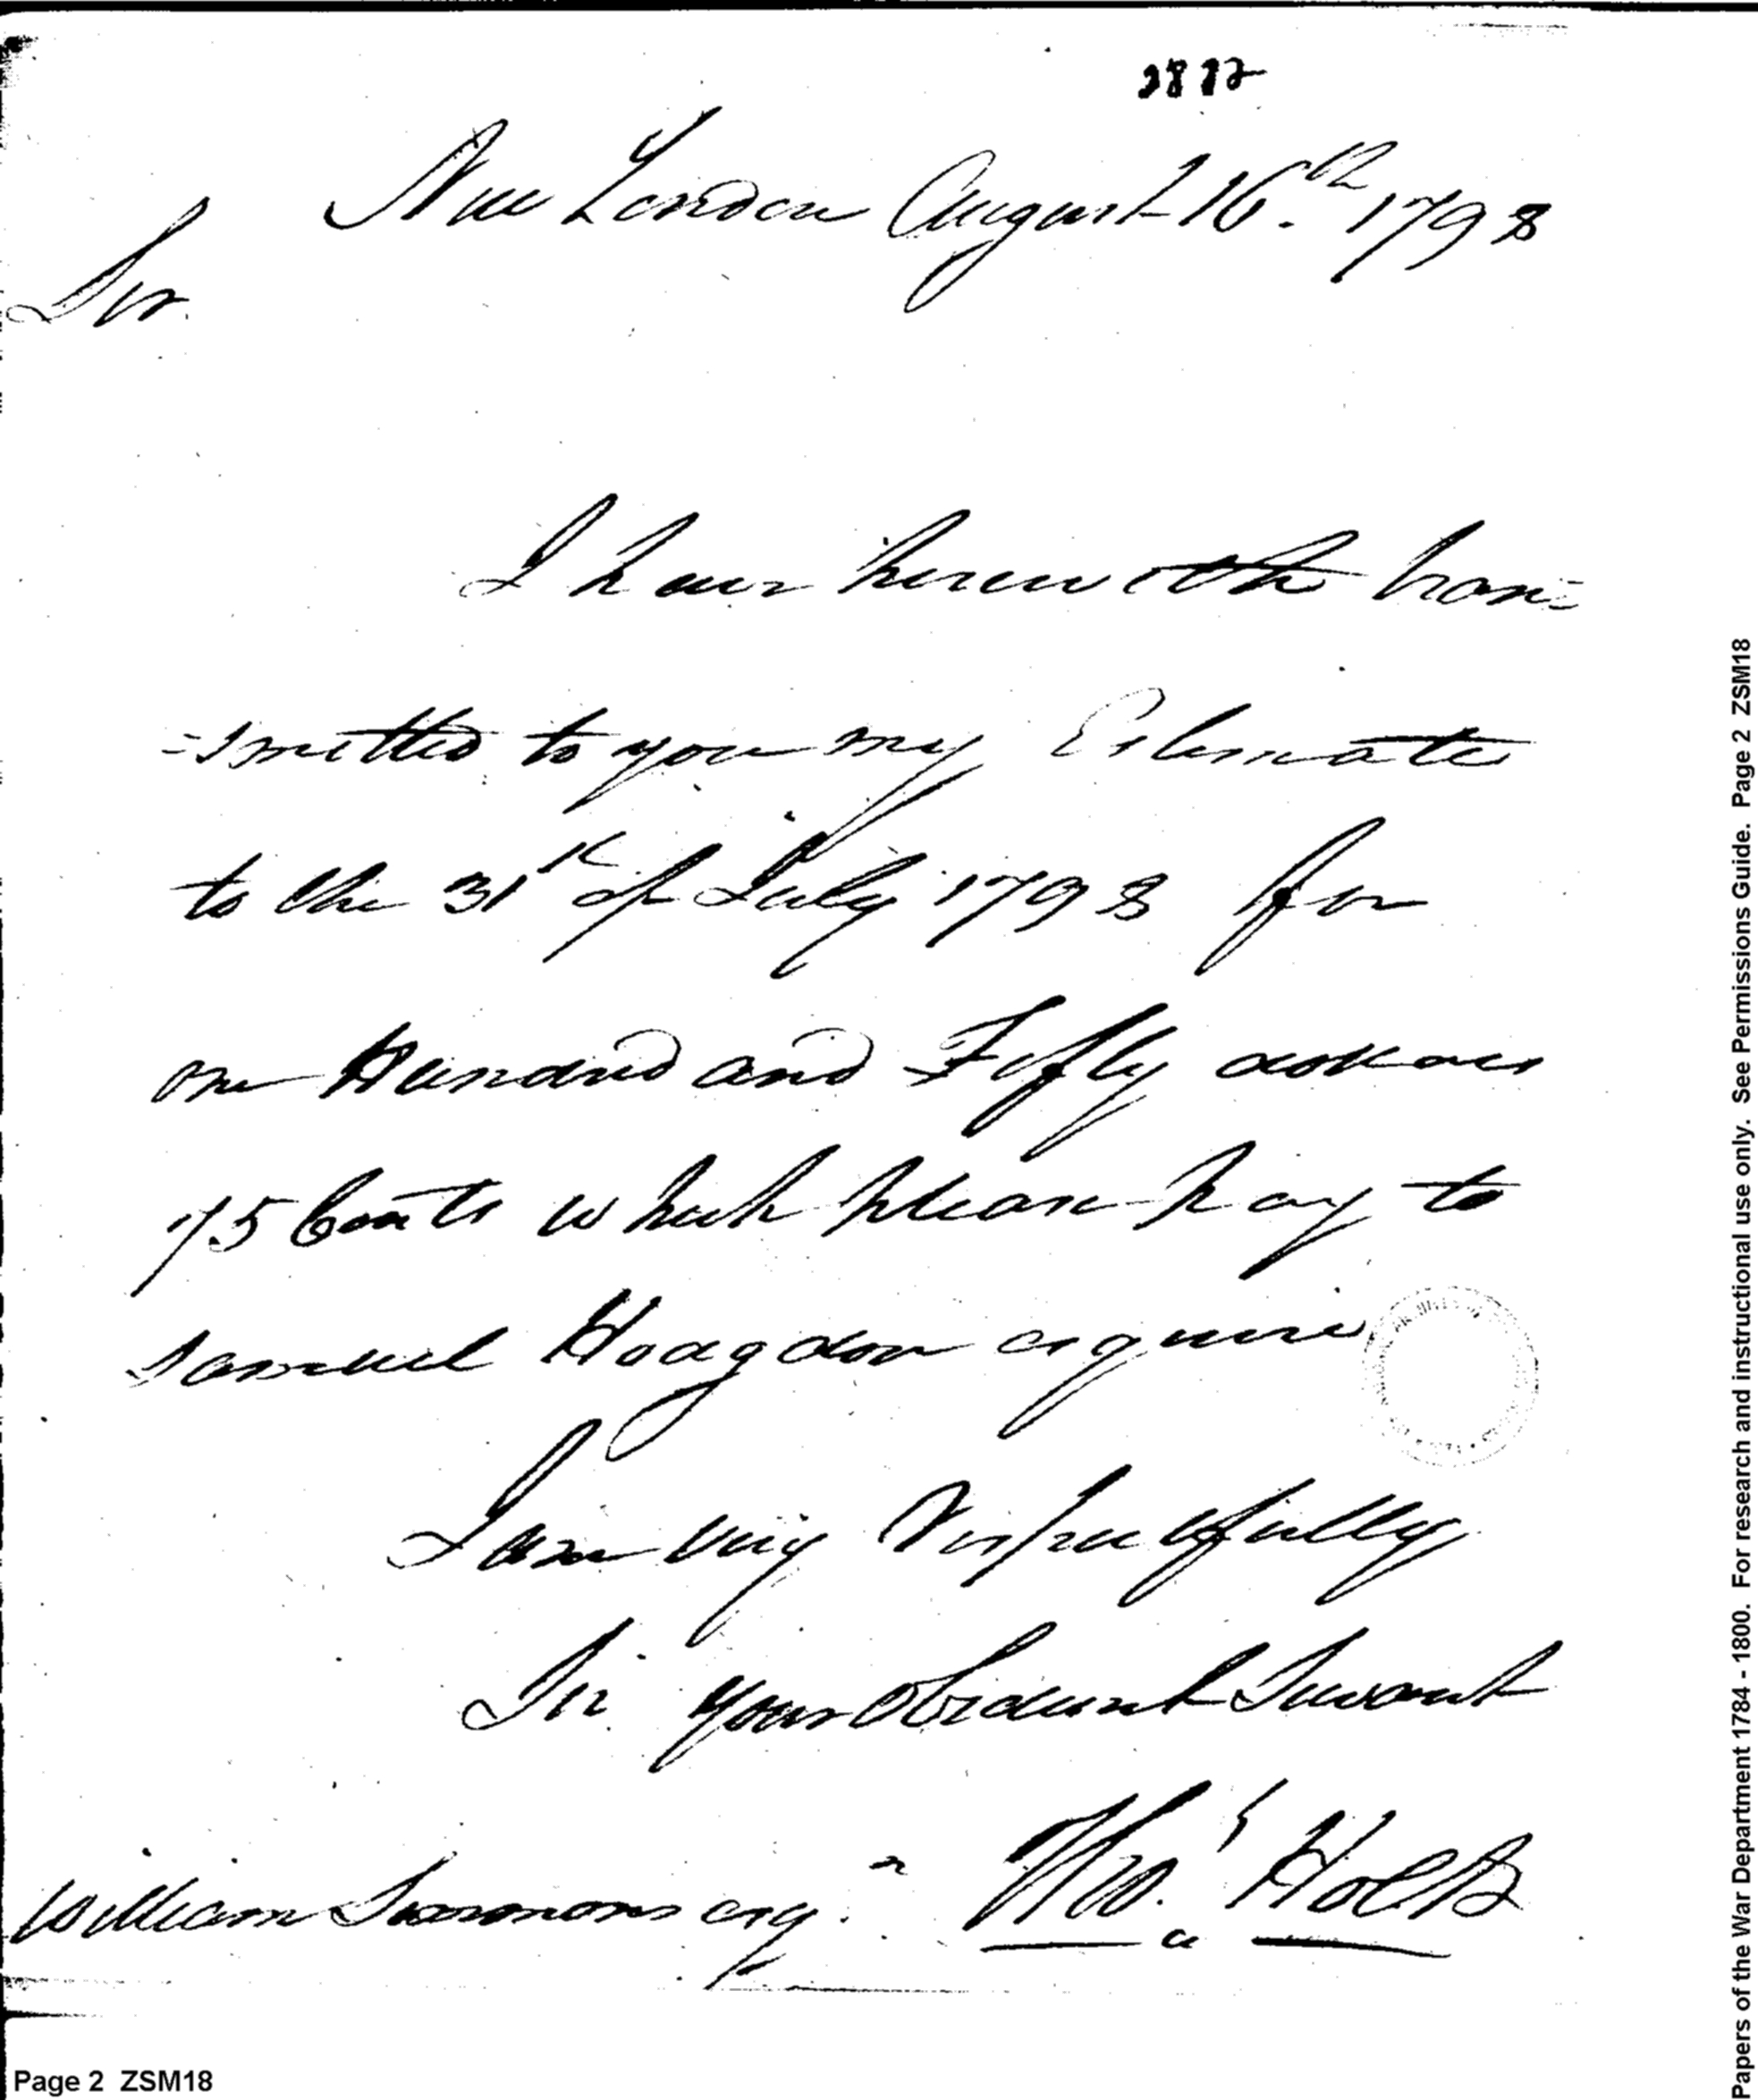 New London August 16.th 1798
Sir
I have herewith tran=
=smitted to you my Estimate
to the 31st of July 1798 for
one Hundred and Fifty dollars
75 Cents which please pay to
Samuel Hodgdon esquire
I am very respectfully
Sir your Obedient Servant
William Simmons esqr.
Tho.s Holt
Page 2 ZSM18
Papers of the War Department 1784 - 1800. For research and instructional use only. See Permissions Guide. Page 2 ZSM18